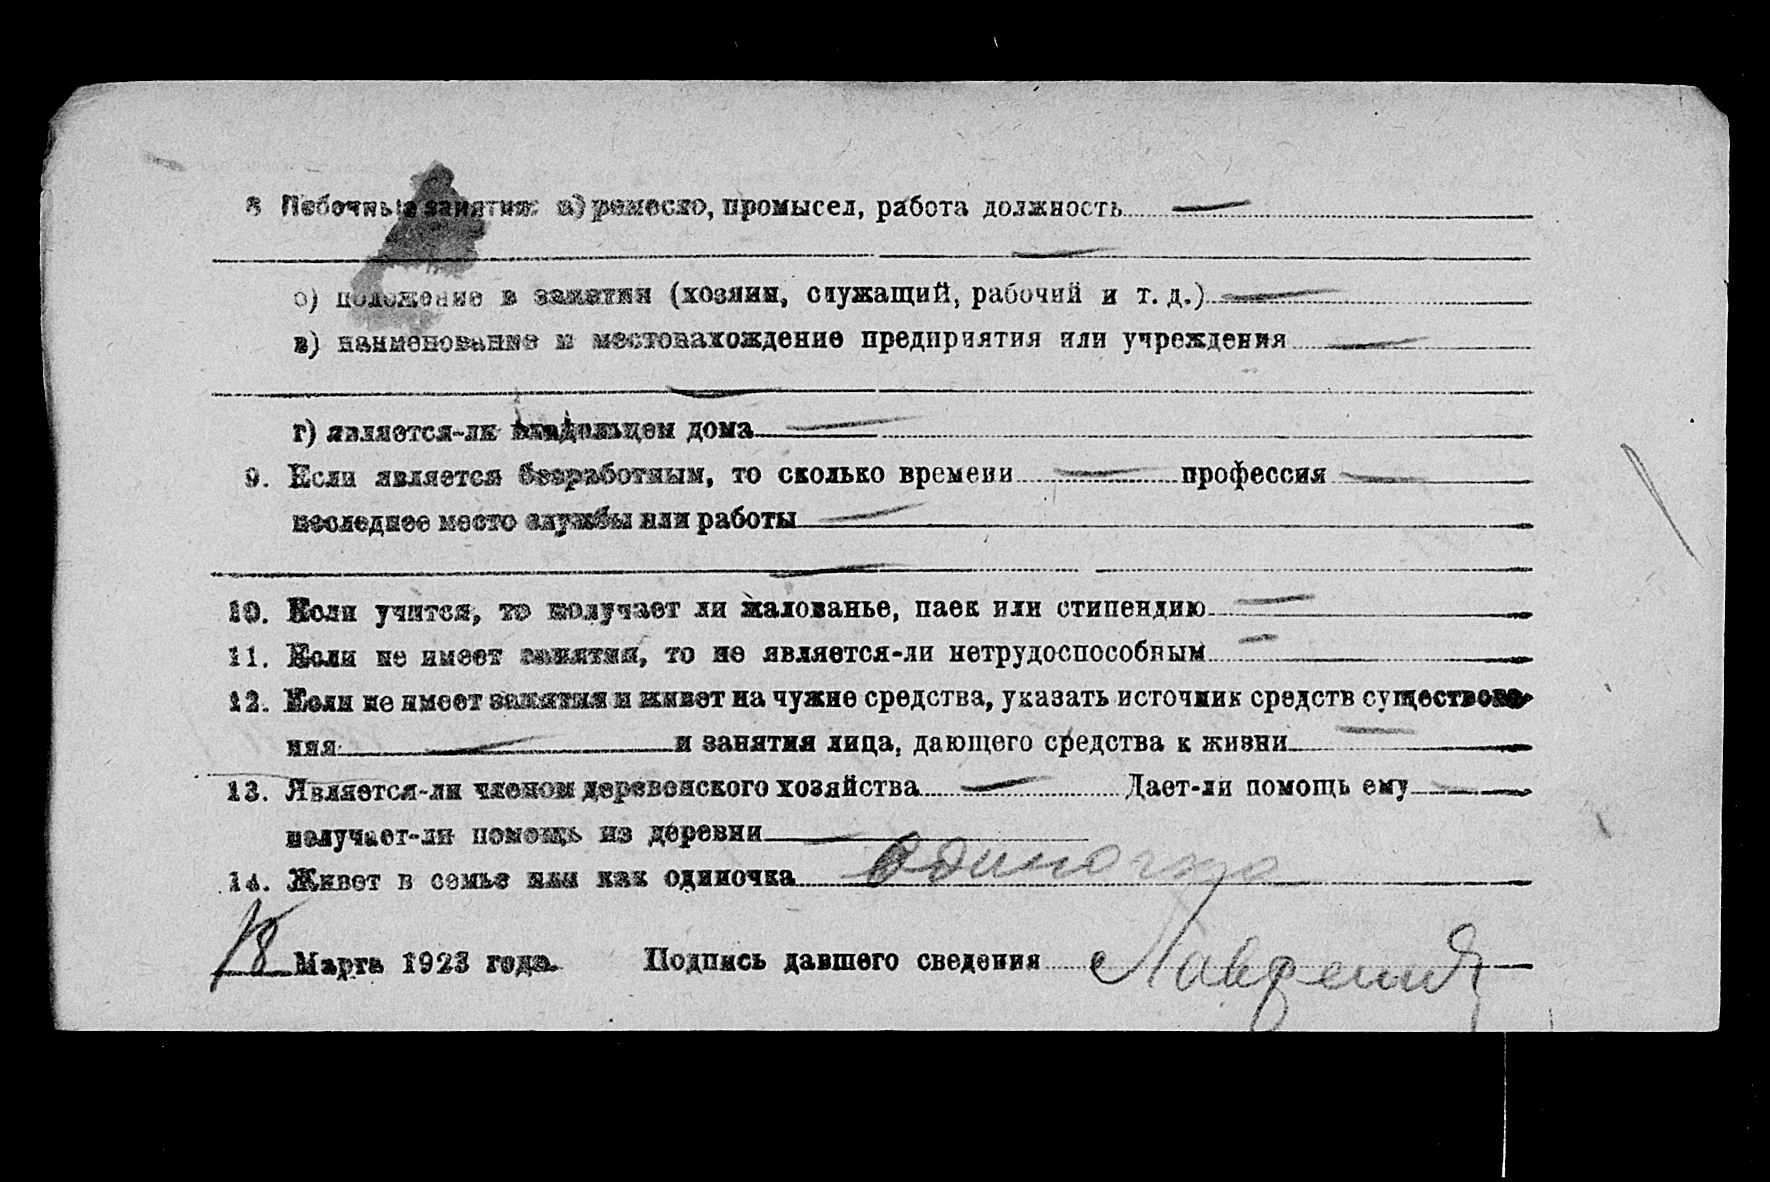 8 Побочные занятия: а) ремесло, промысел, работа должность
б) положение в занятии (хозяин, служащий, рабочий и т. д.)
в) наименование и местонахождение предприятия или учреждения
г) является-ли владельцем дома
9. Если является безработным, то сколько времени профессия
последнее место службы или работы
10. Если учится, то получает ли жалованье, паек или стипендию
11. Если не имеет занятия, то не является-ли нетрудоспособным
12. Если не имеет занятия и живет на чужие средства, указать источник средств существова-
ния и занятия лица, дающего средства к жизни
13. Является-ли членом деревенского хозяйства Дает-ли помощь ему
получает-ли помощь из деревни
14. Живет в семье или как одиночка одиночка
18 Марта 1923 года. Подпись давшего сведения